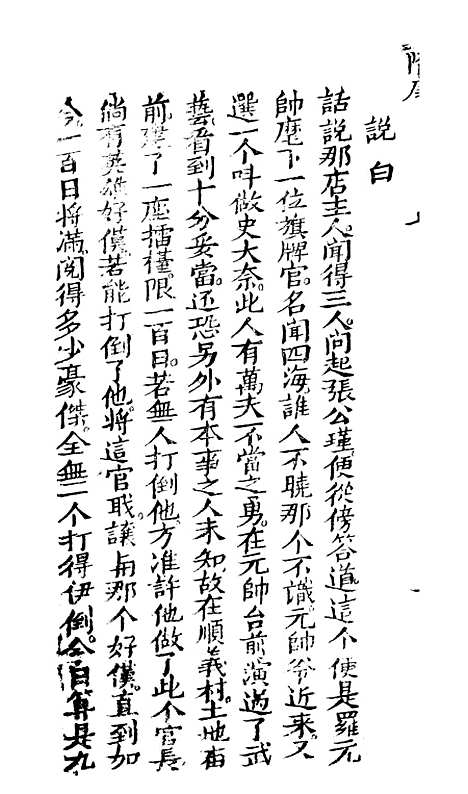 說白
話說那店主人聞得三人问起張公瑾便從傍答道這个便是羅元
帥麾下一位旗牌官名聞四海誰人不曉那个不識元帥爷近来又
選一个叫做史大奈此人有萬夫不當之勇在元帥台前演過了武
藝看到十分妥當还恐另外有本事之人未知故在順義村土地庙
前建了一座擂檯限一百日若無人打倒他方准許他做了此个官長
倘有英雄好僕若能打倒了他将這官戝讓与那个好僕直到如
今一百日将滿閲得多少豪傑全無一个打得伊倒今日算是九